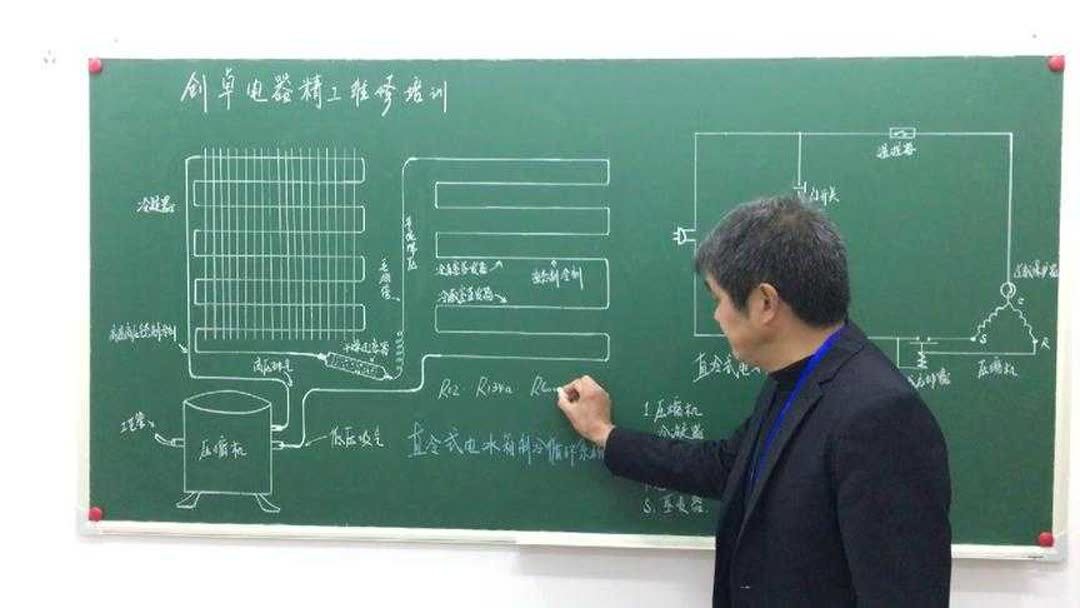 创卓电器精工维修培训
冷凝器
高压排气
压缩机
工艺管
低压吸气
干燥过滤器
毛细管
节流降压
冷冻室蒸发器
冷藏室蒸发器
R12 · R134a R60
直冷式电冰箱制冷循环系统
温控器
门开关
过载保护器
C
S
R
压缩机
直冷式电
1. 压缩机
冷凝器
5. 蒸发器